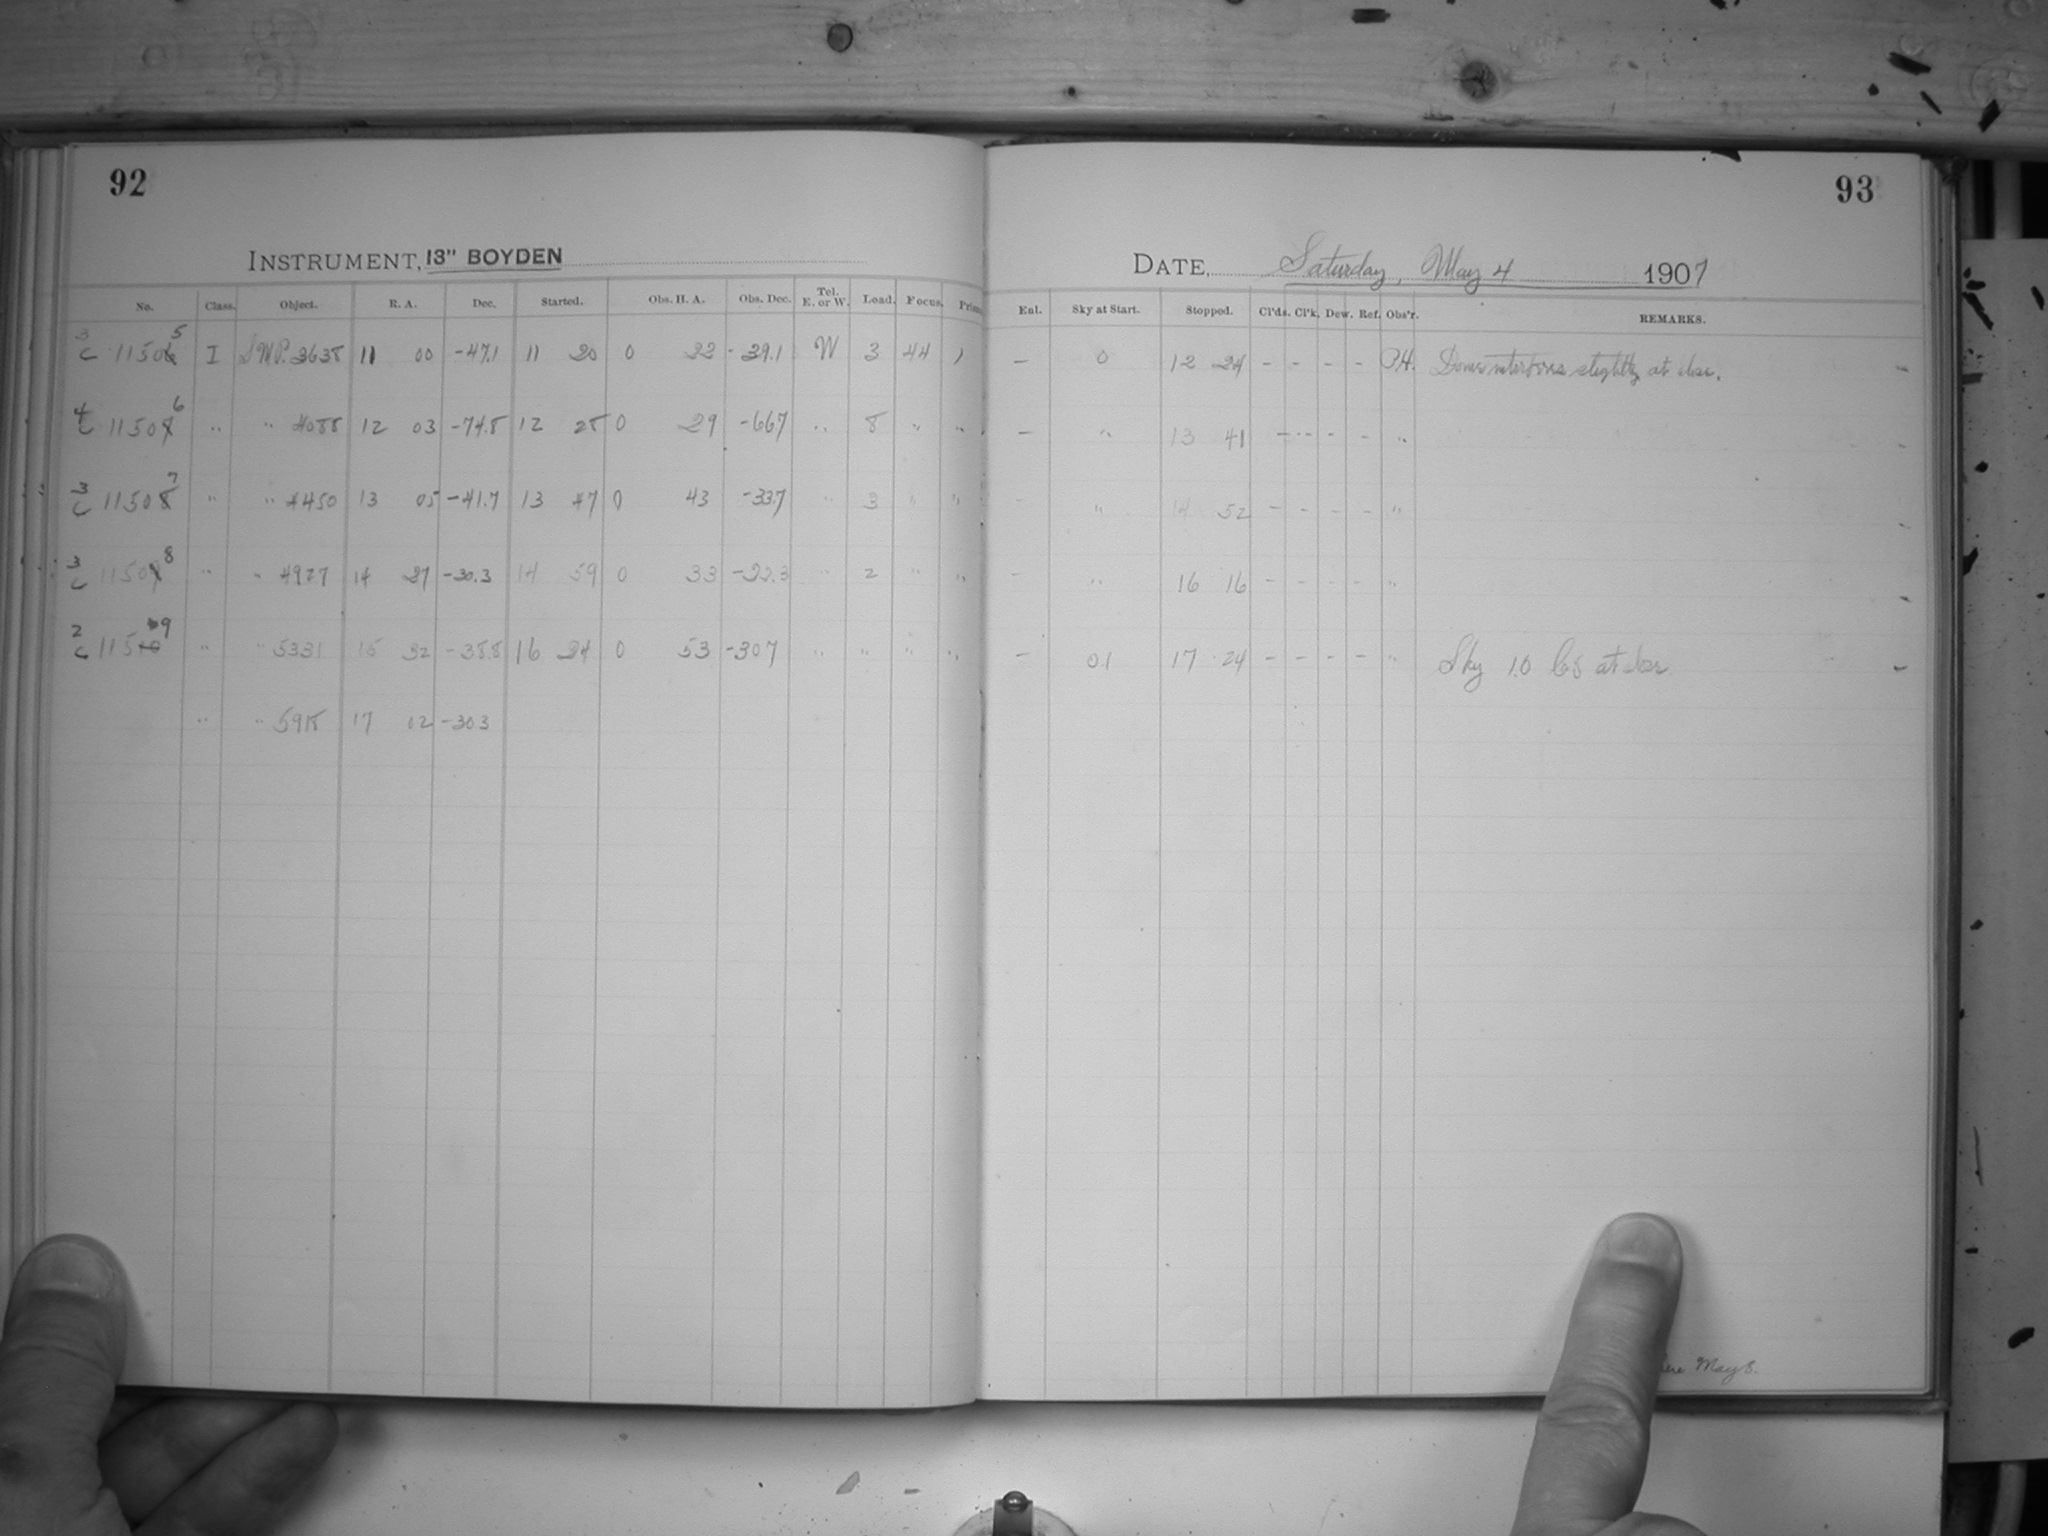 92
INSTRUMENT, 13" BOYDEN
No. Class. Object. R. A. Dec. Started. Obs. H. A. Obs. Dec. Tel. E. or W. Load. Focus.
3 C 11506 5 I S.M.P. 3638 11 00 -47.1 11 20 0 22 -39.1 W 3 44 )
4 C 11507 6 " " 4088 12 03 -74.8 12 28 0 29 -667 " 8 " "
3 C 11508 7 " " 4450 13 05 -41.7 13 47 0 43 -337 " 3 " "
3 C 11509 8 " " 4927 14 27 -30.3 14 59 0 33 -22.3 " 2 " "
2 C 11510 9 " " 5331 15 32 -38.8 16 24 0 53 -307 " " " "
" " 5918 17 02 -303
93
DATE, Saturday, May 4 1907
Enl. Sky at Start. Stopped. Cl'ds. Cl'k. Dew. Ref. Obs'r. REMARKS.
— 0 12 24 - - - - slightly at close.
— " 13 41 - - - - "
- " 14 52 - - - - "
- " 16 16 - - - - "
— 01 17 24 - - - - " Sky 1.0 at close
May 8.